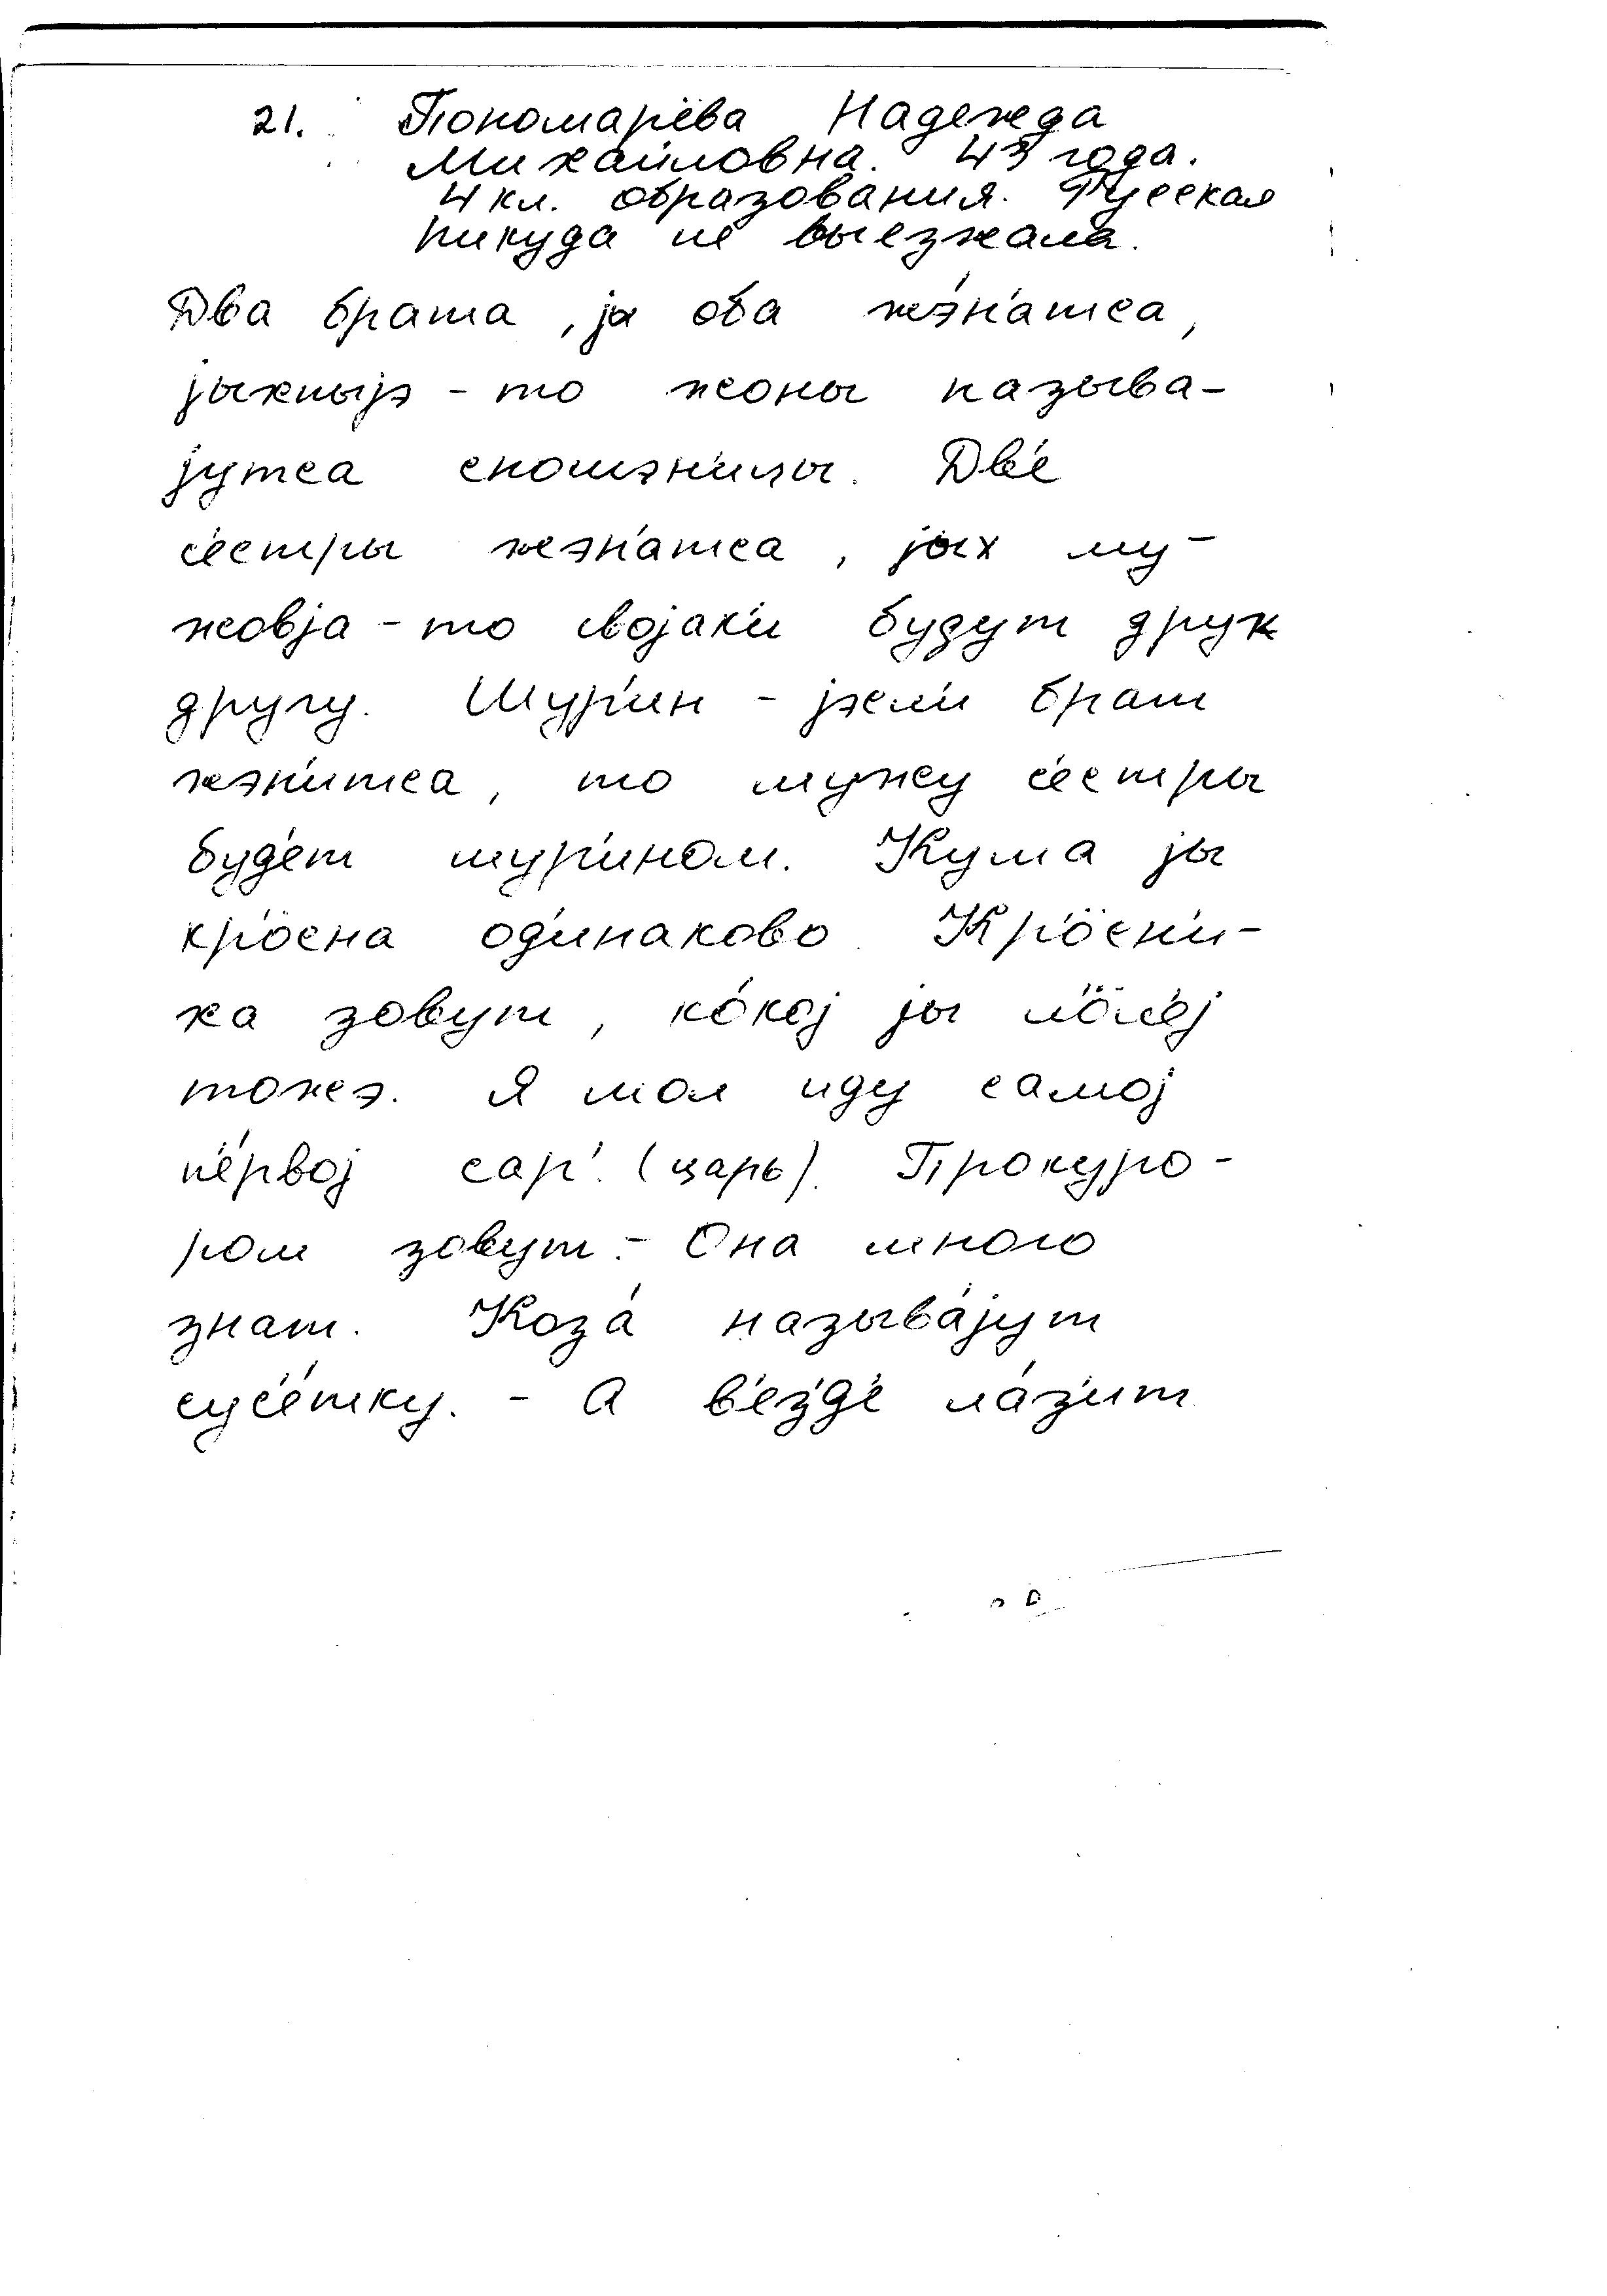 21. Пономарёва Надежда
Михайловна. 43 года.
4 кл. образования. Русская
Никуда не выезжала.
Два брата, jа оба жэн'атса,
jыхныjэ - то жоны называ-
jутса сношэн'ицы. Дв'е
с'естры жэн'атса, jых му-
жовjа - то своjак'и будут друк
другу. Шур'ин - jэсл'и брат
жэн'итса, то мужу с'естры
буд'ет шур'ином. Кума jы
кр'ӧсна од'инаково. Кр'ӧсн'и-
ка зовут, ко́коj jы л'ӧл'еj
тожэ. Я мол иду самоj
п'е́рвоj сар'. (царь). Прокуро-
ром зовут. - Она много
знат. Коза́ называ́jут
сус'е́тку. - А в'ез'д'е ла́з'ит